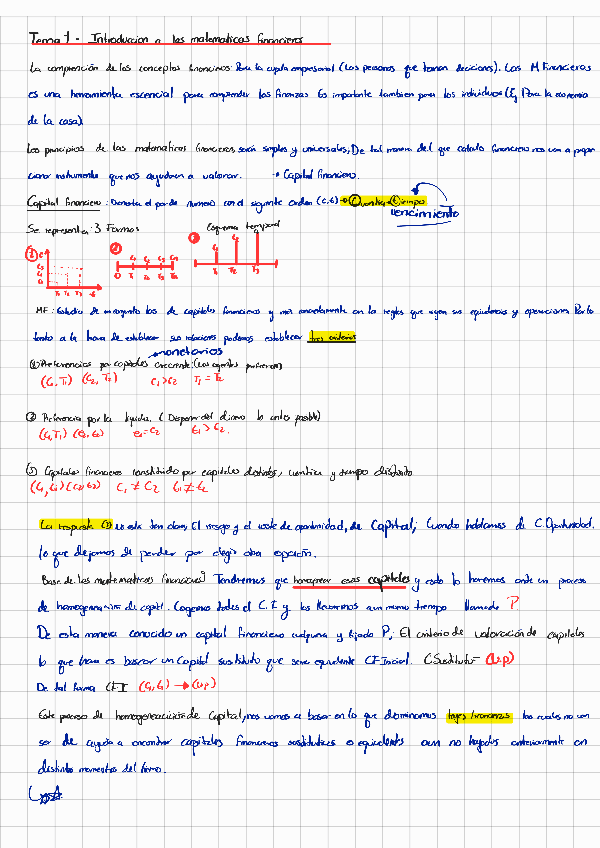 Tema 1 - Introduccion a las matematicas financieras
La comprención de los conceptos financieros: Para la cupula empresarial (Las personas que toman deciciones). Las M.Financieras
es una herramienta escencial para comprender las finanzas Es importante tambien para los individuos (Ej Para la economia
de la casa)
Los principios de las matematicas financieras, serán simples y universales; De tal manera del que calculo financiero nos van a propor
cionar instrumentos que nos ayudaran a valorar. → Capital financiero.
Capital financiero: Denota el par de numero con el siguente orden (c,t) → C cuantia, t tiempo
vencimiento
Se representa: 3 Formas
Esquema temporal
① ② ③
MF: Estudio de conjunto los de capitales financieros y más concretamente en la reglas que rigen sus equivalencia y operaciones Por lo
tanto a la hora de establecer sus relaciones podemos establecer tres criterios
monetarios
① Preferencias por capitales creciente: (Los agentes prefieren)
(C₁, T₁) (C₂, T₂) C₁>C₂ T₁=T₂
② Preferencia por la liquidez. (Disponer del dinero lo antes posible)
(C₁,T₁) (C₂,t₂) C₁=C₂ t₁>t₂.
③ Capitales financieros constituido por capitales distintos, cuantia y tiempo distinto
(C₁,t₁) (C₂,t₂) C₁≠C₂ t₁≠t₂
La respuesta ③ no esta tan clara, El riesgo y el coste de oportunidad, de Capital; Cuando hablamos de C.Oportunidad.
lo que dejamos de perder por elegir otra opción.
Base de las matematicas financieras] Tendremos que homogenear esas capitales y todo lo haremos ante un proceso
de homogeneización de capital. Cogemos todos el C.I y los llevaremos a un mismo tiempo llamado P
De esta manera conocido un capital financiero cualquiera y fijado P; El criterio de valoración de capitales
lo que hara es buscar un Capital sustituto que sera equivalente CF Inicial. C Sustituto - (V,p)
De tal forma CFI (C₁,t₁) → (V,p)
Este proceso de homogeneización de Capital, nos vamos a basar en lo que denominamos leyes financieras las cuales no van
ser de ayuda a encontrar capitales financieros sustitutivos o equivalents aun no llegados anteriormente en
distintos momentos del tiempo.